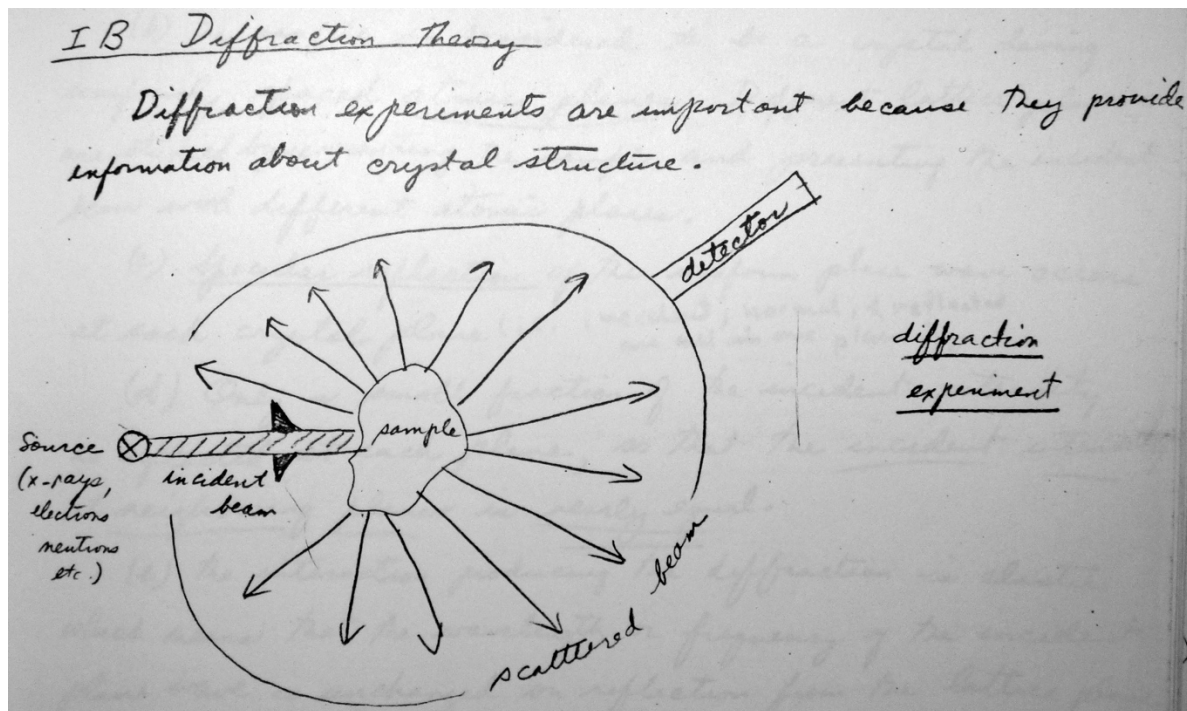 I B Diffraction Theory
Diffraction experiments are important because they provide
information about crystal structure.
detector
diffraction
experiment
sample
Source
(x-rays,
electrons
neutrons
etc.)
incident
beam
scattered beam